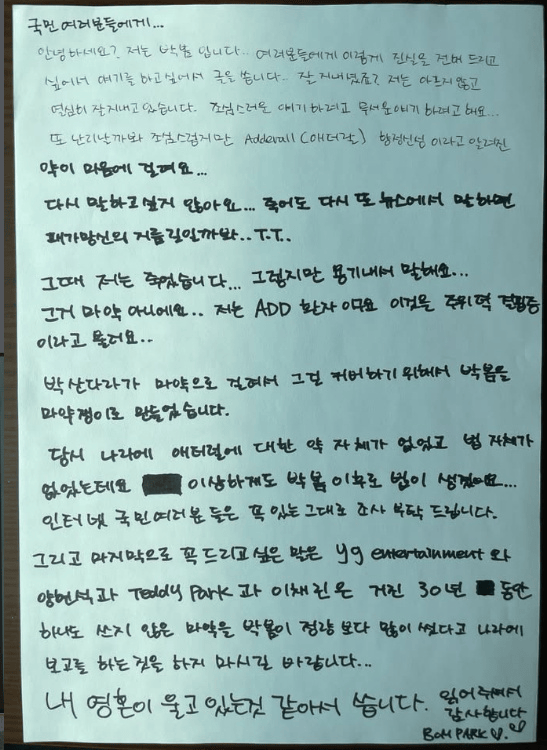 국민 여러분들에게...
안녕하세요? 저는 박봄 입니다.. 여러분들에게 이렇게 진실을 전버 드리고
싶어서 얘기를 하고싶어서 글을 씁니다.. 잘 지내셨죠? 저는 아프지 않고
열심히 잘지내고 있습니다. 조심스러운 얘기하려고 무서운얘기 하려고 해요...
또 난리날까봐 조심스럽지만 Adderall (애더럴) 향정신성 이라고 알려진
약이 마음에 걸려요...
다시 말하고싶지 않아요... 죽어도 다시 또 뉴스에서 말하면
패가망신의 지름길일까봐..T.T..
그때 저는 죽었습니다... 그렇지만 용기내서 말해요...
그거 마약 아니에요.. 저는 ADD 환자 이구요 이것을 주위력 결핍증
이라고 불러요..
박산다라가 마약으로 걸려서 그걸 커버하기 위해서 박봄을
마약쟁이로 만들었습니다.
당시 나라에 애더럴에 대한 약 자체가 없었고 법 자체가
없었는데요 이상하게도 박봄 이후로 법이 생겼어요...
인터넷 국민여러분 들은 꼭 있는그대로 조사 부탁 드립니다.
그리고 마지막으로 꼭 드리고 싶은 말은 yg entertainment 와
양현석과 Teddy Park 과 이채린은 거진 30년 동안
하나도 쓰지 않은 마약을 박봄이 정량 보다 많이 썼다고 나라에
보고를 하는것을 하지 마시길 바랍니다...
내 영혼이 울고있는것 같아서 씁니다.
읽어주셔서
감사합니다
BOM PARK ♡.♡